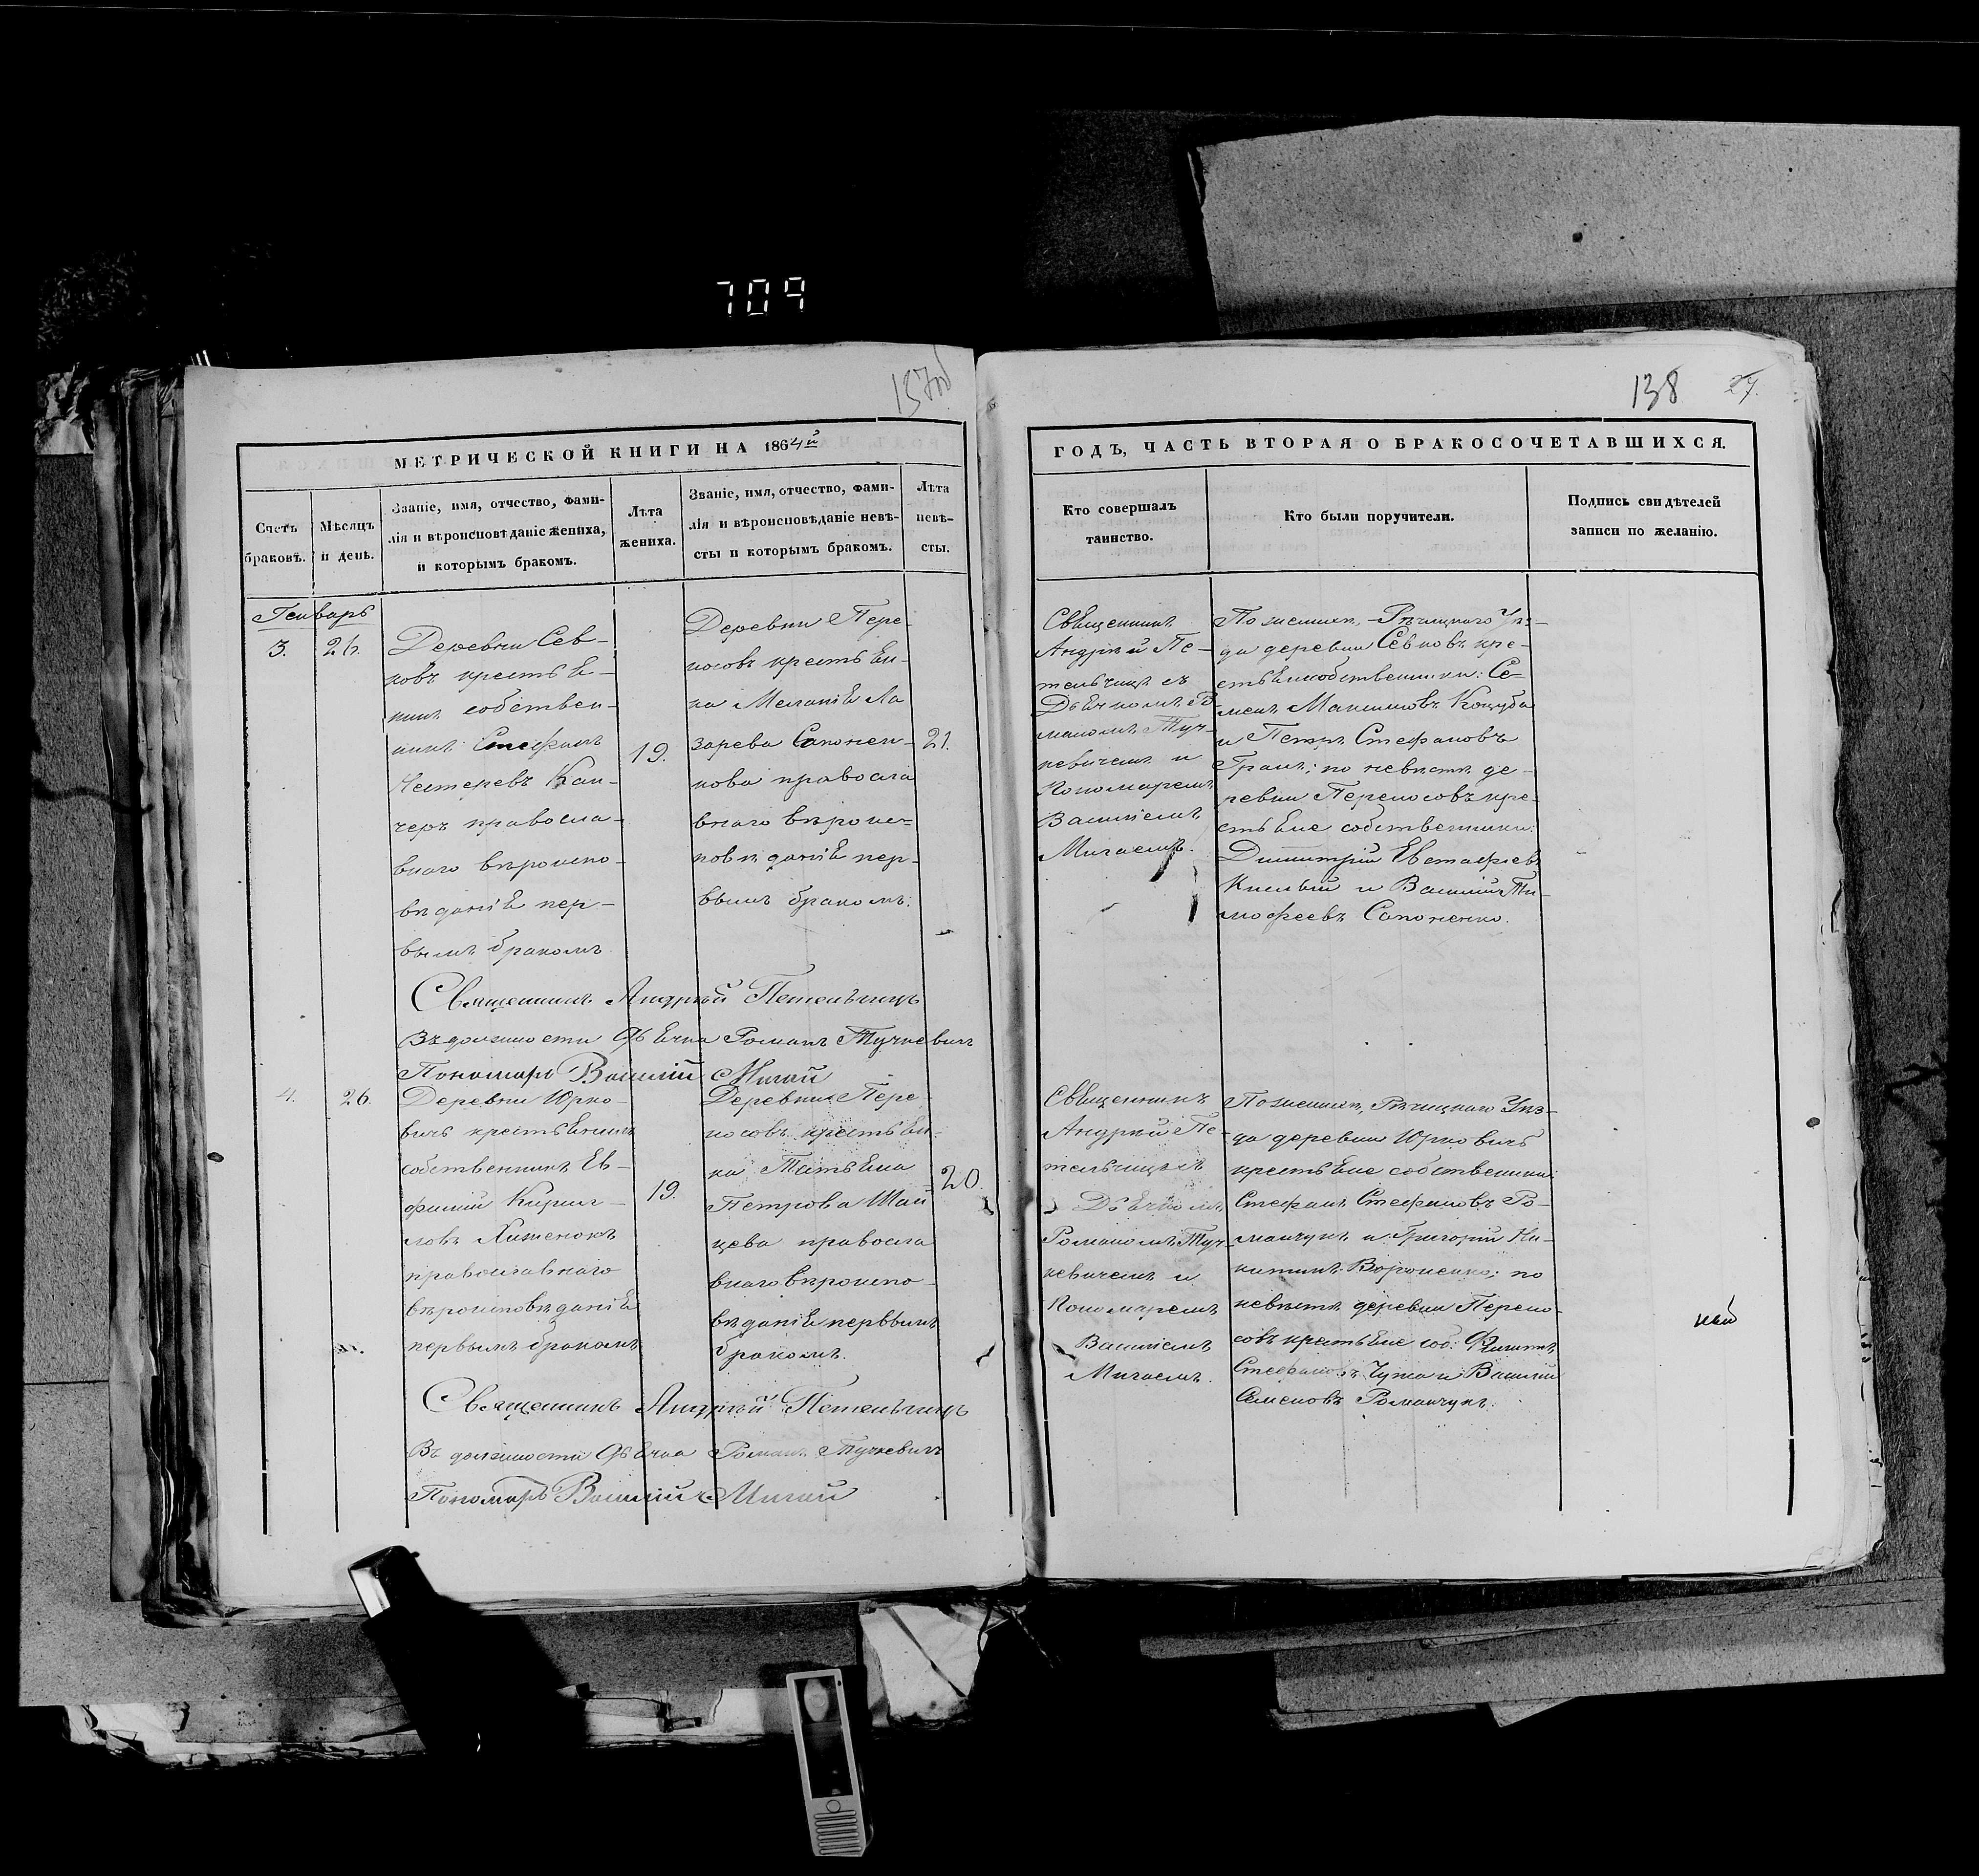 709
138 27.
МЕТРИЧЕСКОЙ КНИГИ НА 1864й
Счетъ браковъ.
Мѣсяцъ и день.
Званіе, имя, отчество, фами-
лія и вѣроисповѣданіе жениха,
и которымъ бракомъ.
Лѣта
жениха.
Званіе, имя, отчество, фами-
лія и вѣроисповѣданіе невѣ-
сты и которымъ бракомъ.
Лѣта
невѣ-
сты.
Генварь
3.
26.
Деревни Сев-
ковъ крестья-
нинъ собствен-
никъ Стефанъ
Нестеровъ Кан-
черъ правосла-
внаго вѣроиспо-
вѣданія пер-
вымъ бракомъ
19.
Деревни Пере-
носовъ крестьян-
ка Меланія Ла
зарева Сапонен-
кова правосла
внаго вѣроис-
повѣданія пер-
вымъ бракомъ.
21.
Священникъ Андрей Петельчицъ
Въ должности Дьячка Романъ Тучкевичъ
Пономарь Василій Мигай
4.
26.
Деревни Юрко-
вичь крестьянинъ
собственникъ Ев-
фимій Кирил-
ловъ Хиженокъ
православнаго
вѣроисповѣданія
первымъ бракомъ
19.
Деревни Пере-
носовъ крестьян-
ка Татьяна
Петрова Шай
цева правосла
внаго вѣроиспо-
вѣданія первымъ
бракомъ.
20.
Священникъ Андрей Петельчицъ
Въ должности Дьячка Романъ Тучкевичъ
Пономарь Василій Мигай
ГОДЪ, ЧАСТЬ ВТОРАЯ О БРАКОСОЧЕТАВШИХСЯ.
Кто совершалъ
таинство.
Кто были поручители.
Подпись свидѣтелей
записи по желанію.
Священникъ
Андрей Пе-
тельчицъ съ
Дьячкомъ Ро-
маномъ Туч-
кевичемъ и
Пономаремъ
Василіемъ
Мигаемъ.
По женихѣ, Рѣчицкаго Уѣз-
да деревни Севковъ кре-
стьяне собственники: Се-
менъ Максимовъ Коцуба
и Петръ Стефановъ
Гранъ; по невѣстѣ де-
ревни Переносовъ кре-
стьяне собственники:
Димитрій Евстафіевъ
Кислый и Василій Ти-
мофеевъ Сапоненко.
Священникъ
Андрей Пе-
тельчицъ съ
Дьячкомъ
Романомъ Туч-
кевичемъ и
Пономаремъ
Василіемъ
Мигаемъ.
По женихѣ, Рѣчицкаго Уѣз-
да деревни Юрковичь
крестьяне собственники:
Стефанъ Стефановъ Ро-
манчукъ и Григорій Ни-
китинъ Вороненко; по
невѣстѣ деревни Перено-
совъ крестьяне соб: Филиппъ
Стефановъ Чужа и Василій
Семеновъ Романчукъ.